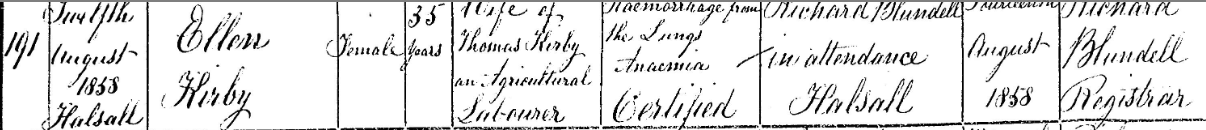 Twelfth
August
1858
Halsall
191
Ellen
Kirby
Female
35
years
Wife of
Thomas Kirby
an Agricultural
Labourer
Haemorrhage from
the Lungs
Anaemia
Certified
Richard Blundell
in attendance
Halsall
Fourteenth
August
1858
Richard
Blundell
Registrar